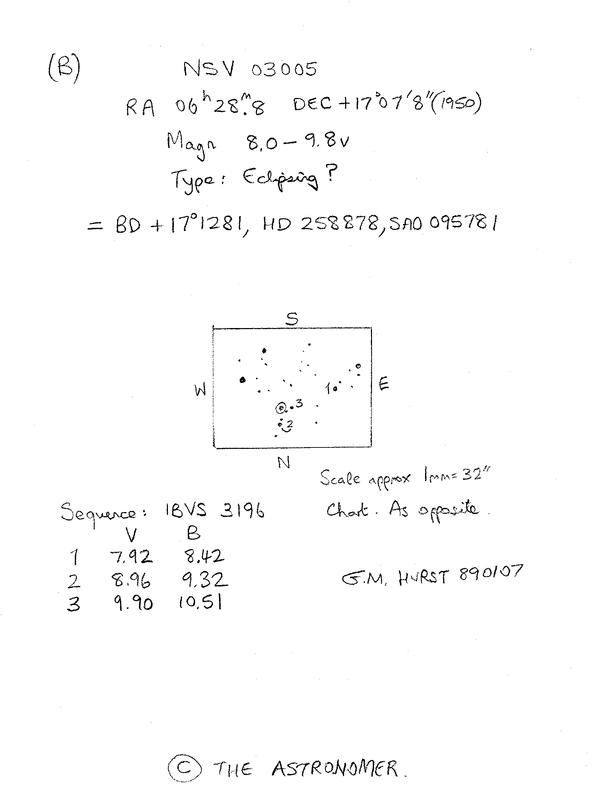 (B) NSV 03005
RA 06ʰ28ᵐ.8 DEC +17°07'8"(1950)
Magn 8.0 - 9.8v
Type: Eclipsing?
= BD +17°1281, HD 258878, SAO 095781
S
W
E
1
3
2
N
Scale approx 1mm=32"
Sequence: IBVS 3196
Chart. As opposite.
V B
1 7.92 8.42
2 8.96 9.32
3 9.90 10.51
G.M. HURST 890107
© THE ASTRONOMER.